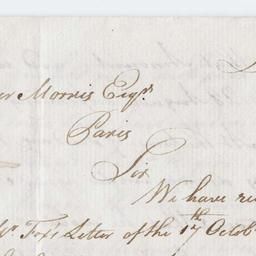 er Morris Esqr.
Paris
Sir
We have re
Mr Fox's Letter of the 17th Octob